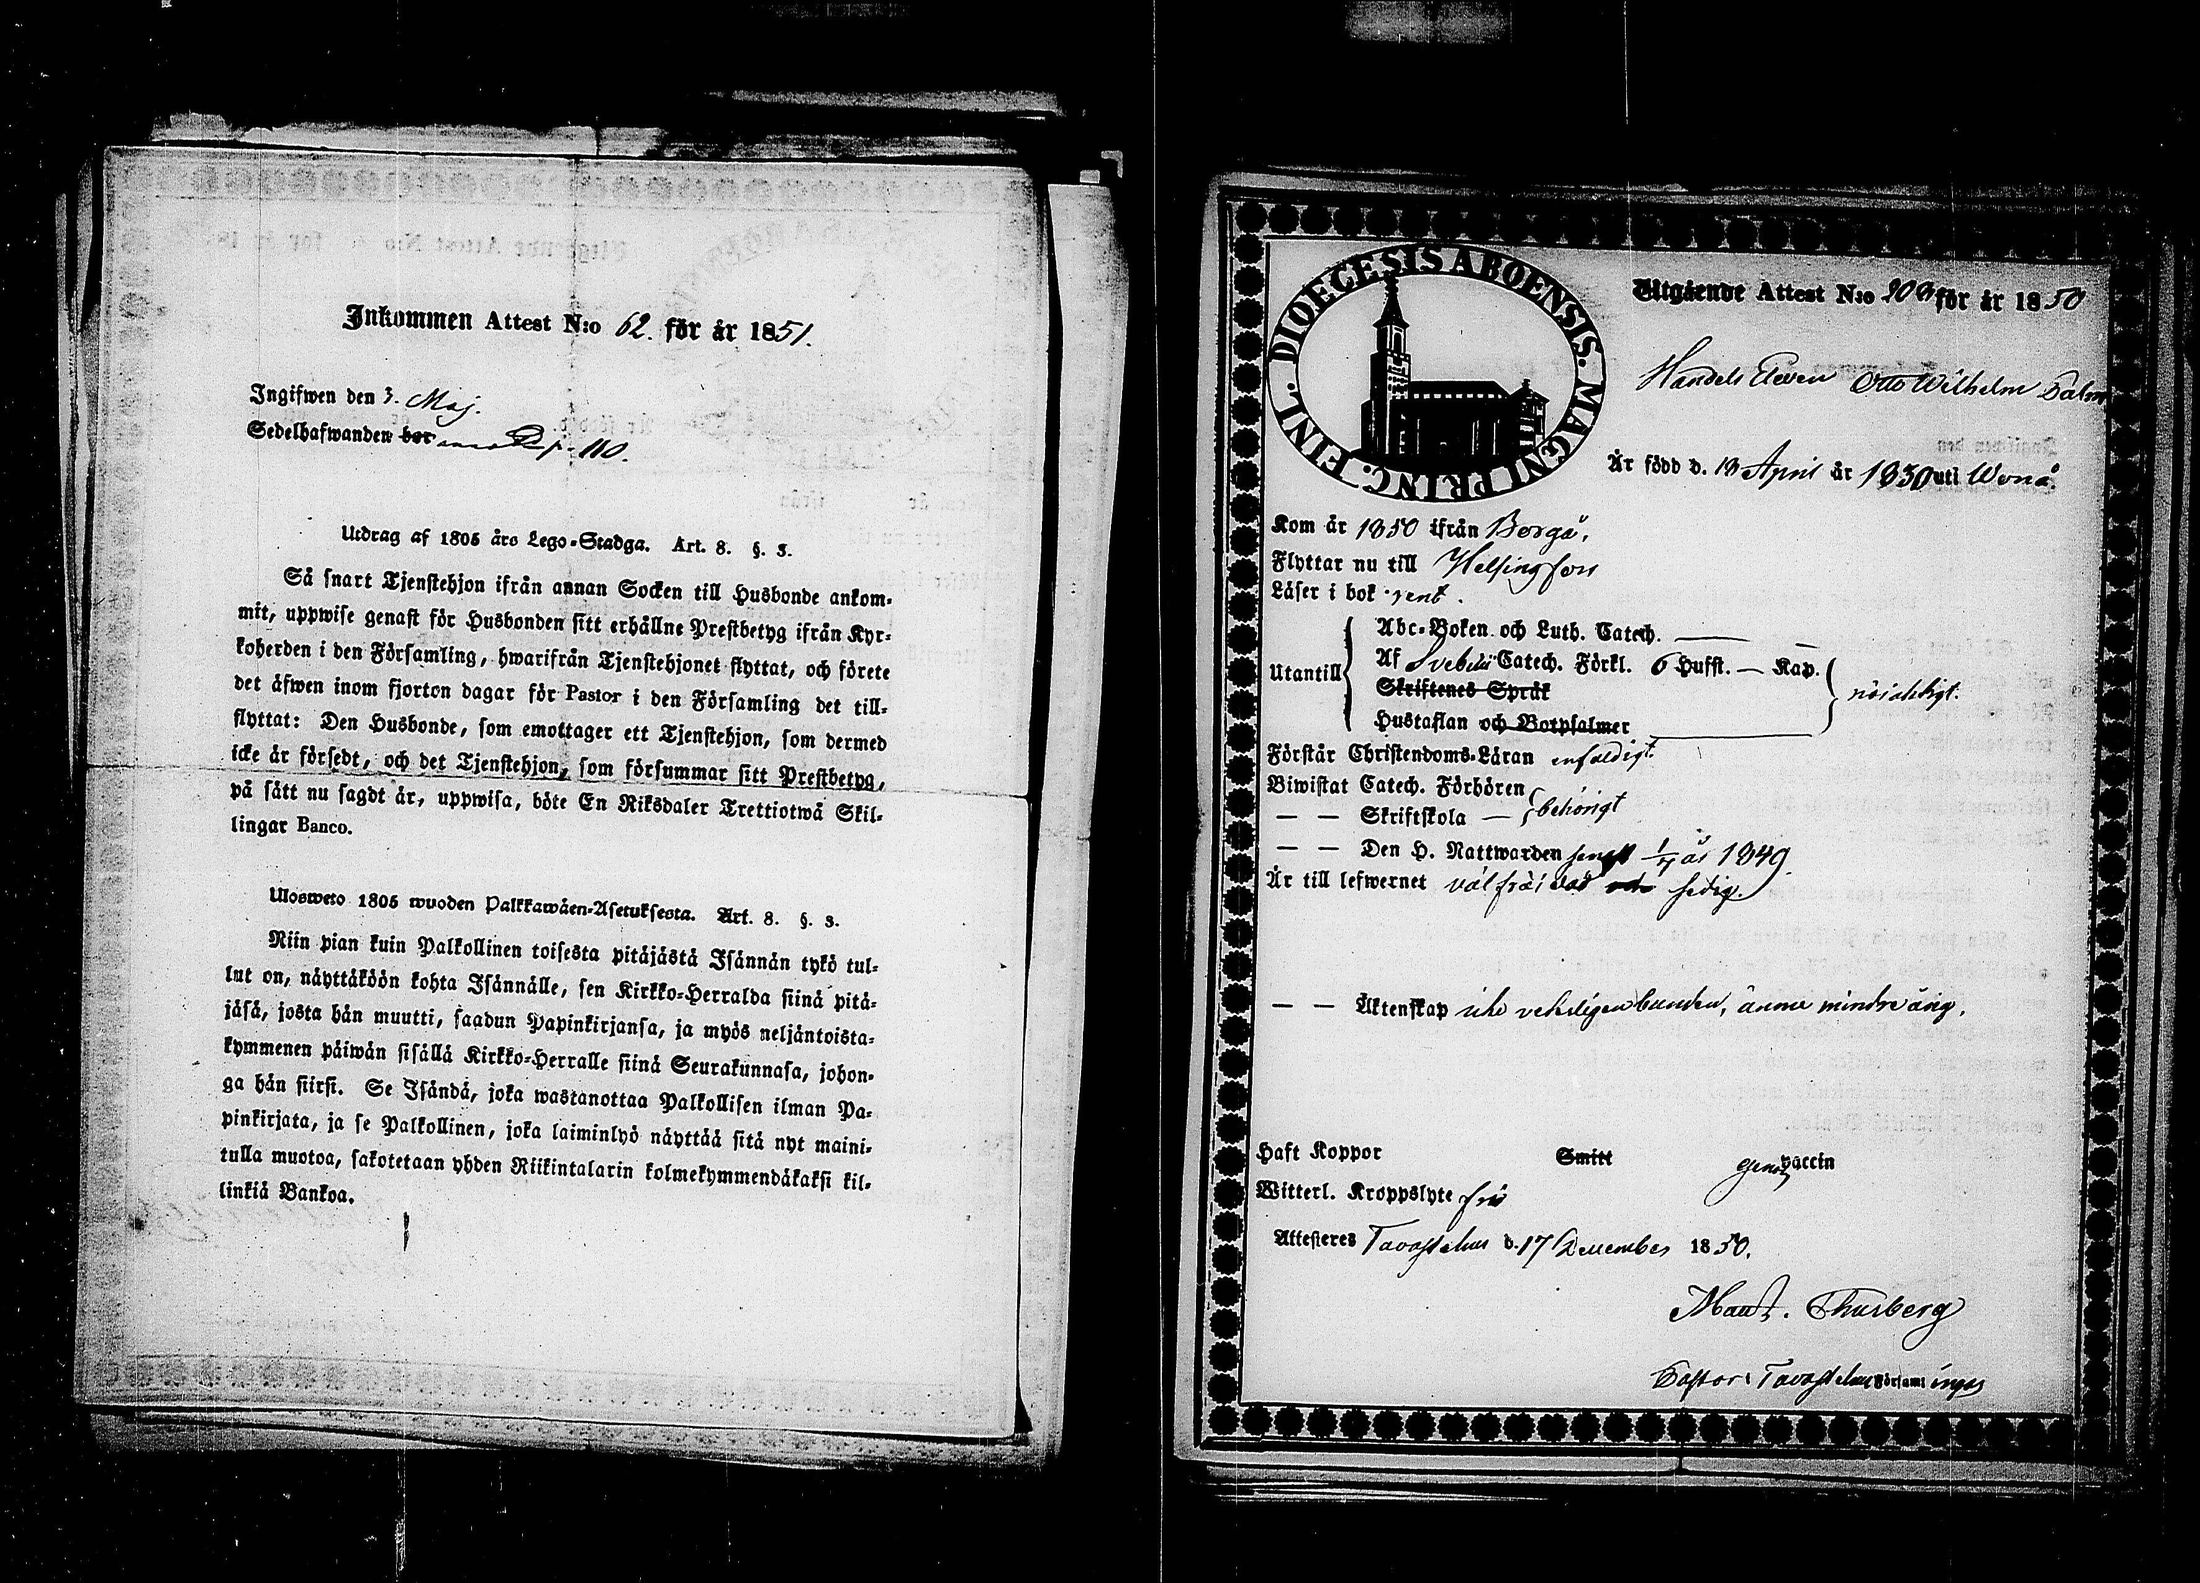 Inkommen Attest N:o 62. för år 1851.
Ingifwen den 3. Maj.
Sedelhafwanden bor p. 110.
Utdrag af 1805 års Lego-Stadga. Art. 8. §. 3.
Så snart Tjenstehjon ifrån annan Socken till Husbonde ankom-
mit, uppwise genast för Husbonden sitt erhållne Prestbetyg ifrån Kyr-
koherden i den Församling, hwarifrån Tjenstehjonet flyttat, och förete
det äfwen inom fjorton dagar för Pastor i den Församling det till-
flyttat: Den Husbonde, som emottager ett Tjenstehjon, som dermed
icke är försedt, och det Tjenstehjon, som försummar sitt Prestbetyg,
på sätt nu sagdt är, uppwisa, böte En Riksdaler Trettiotwå Skil-
lingar Banco.
Ulosweto 1805 wuoden Palkkawäen-Asetuksesta. Art. 8. §. 3.
Niin pian kuin Palkollinen toisesta pitäjästä Isännän tykö tul-
lut on, näyttäköön kohta Isännälle, sen Kirkko-Herralda siinä pitä-
jäsä, josta hän muutti, saadun Papinkirjansa, ja myös neljäntoista-
kymmenen päiwän sisällä Kirkko-Herralle siinä Seurakunnasa, johon-
ga hän siirsi. Se Isändä, joka wastanottaa Palkollisen ilman Pa-
pinkirjata, ja se Palkollinen, joka laiminlyö näyttää sitä nyt maini-
tulla muotoa, sakotetaan yhden Riikintalarin kolmekymmendäkaksi kil-
linkiä Bankoa.
DIOECESIS ABOENSIS. MAGNI PRINC. FINL.
Utgående Attest N:o 203 för år 1850
Handels Eleven Otto Wilhelm Palm
Är född d. 13 April år 1830 uti Wånå.
Kom år 1850 ifrån Borgå.
Flyttar nu till Helsingfors
Läser i bok rent.
Utantill
Abc-Boken och Luth. Catech. —
Af Svebilii Catech. Förkl. 6 Hufst. — Kap.
Skriftenes Språk
Hustaflan och Botpsalmer
nöjaktigt.
Förstår Christendoms-Läran enfaldigt.
Biwistat Catech. Förhören
— — Skriftskola — behörigt
— — Den H. Nattwarden senast 1/7 år 1849.
Är till lefwernet välfräjdad och sedig.
— — Äktenskap icke veterligen bunden, ännu minderårig.
Haft Koppor Smitt genom vaccin
Witterl. Kroppslyte fri
Attesteres Tavastehus d. 17 December 1850.
Maur. Thurberg
Pastor i Tavastehus Församlingar